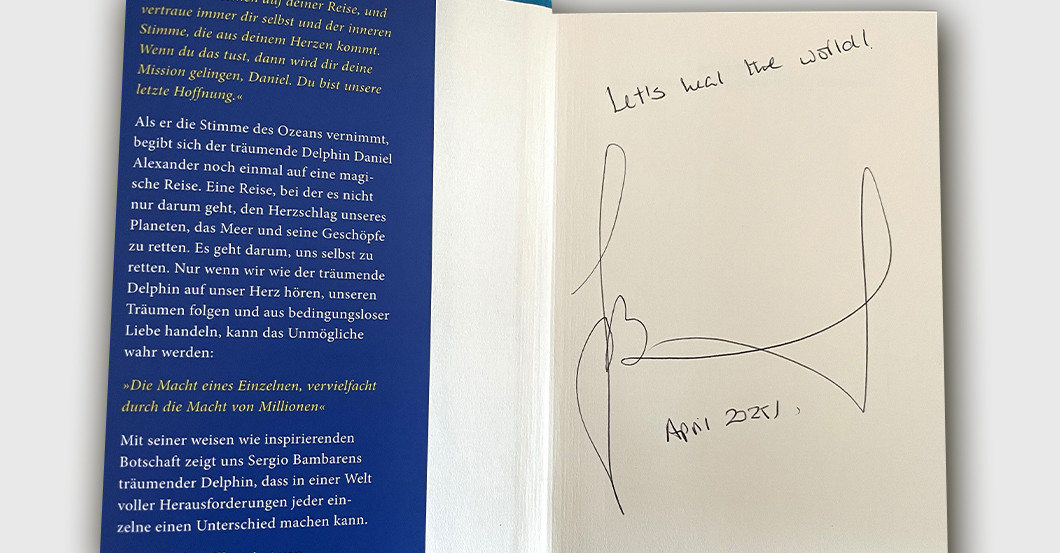 auf deiner Reise, und
vertraue immer dir selbst und der inneren
Stimme, die aus deinem Herzen kommt.
Wenn du das tust, dann wird dir deine
Mission gelingen, Daniel. Du bist unsere
letzte Hoffnung.«
Als er die Stimme des Ozeans vernimmt,
begibt sich der träumende Delphin Daniel
Alexander noch einmal auf eine magi-
sche Reise. Eine Reise, bei der es nicht
nur darum geht, den Herzschlag unseres
Planeten, das Meer und seine Geschöpfe
zu retten. Es geht darum, uns selbst zu
retten. Nur wenn wir wie der träumende
Delphin auf unser Herz hören, unseren
Träumen folgen und aus bedingungsloser
Liebe handeln, kann das Unmögliche
wahr werden:
»Die Macht eines Einzelnen, vervielfacht
durch die Macht von Millionen«
Mit seiner weisen wie inspirierenden
Botschaft zeigt uns Sergio Bambarens
träumender Delphin, dass in einer Welt
voller Herausforderungen jeder ein-
zelne einen Unterschied machen kann.
Let's heal the world!
April 2025